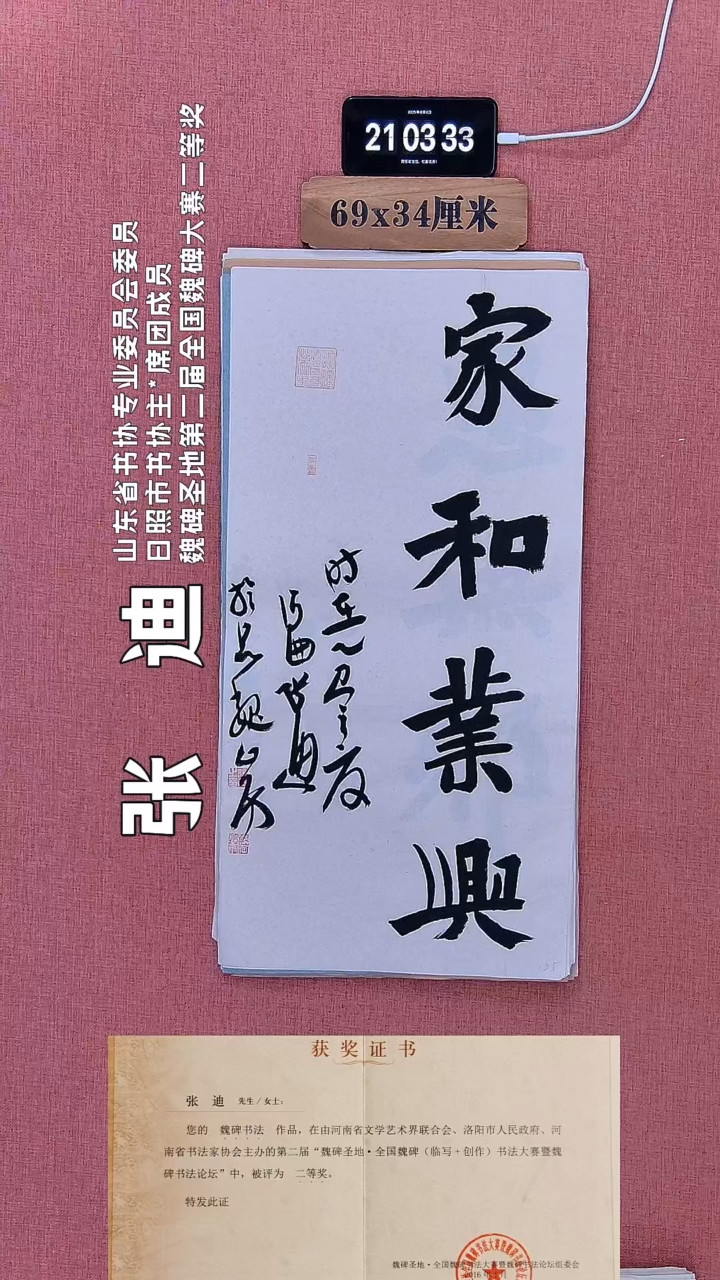 21 03 33
69x34厘米
山东省书协专业委员会委员
日照市书协主*席团成员
魏碑圣地第二届全国魏碑大赛二等奖
张 迪
家和業興
获奖证书
张 迪 先生／女士：
您的 魏碑书法 作品，在由河南省文学艺术界联合会、洛阳市人民政府、河
南省书法家协会主办的第二届“魏碑圣地·全国魏碑（临写+创作）书法大赛暨魏
碑书法论坛”中，被评为 二等奖。
特发此证
魏碑圣地·全国魏碑书法大赛暨魏碑书法论坛组委会